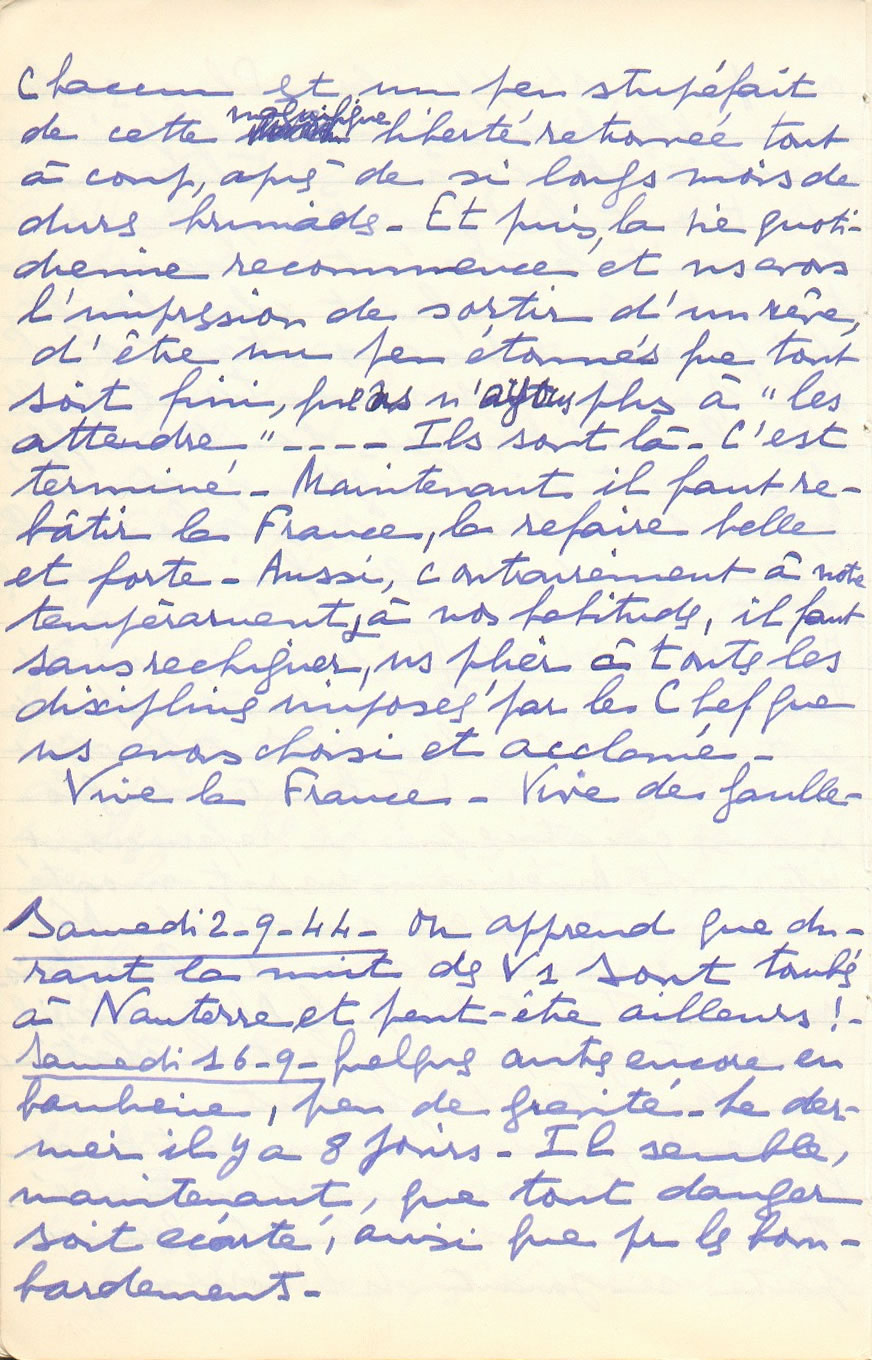 Chacun est un peu stupéfait
de cette magnifique liberté retrouvée tout
à coup, après de si longs mois de
durs brimades - Et puis, la vie quoti-
dienne recommence et ns avons
l'impression de sortir d'un rêve,
d'être un peu étonnés que tout
soit fini, que ns n'ayons plus à "les
attendre" ---- Ils sont là - C'est
terminé - Maintenant il faut re-
bâtir la France, la refaire belle
et forte - Aussi, contrairement à notre
tempérament, à nos habitudes, il faut
sans rechigner, ns plier à toutes les
disciplines imposées par le Chef que
ns avons choisi et acclamé -
Vive la France - Vive de Gaulle -
Samedi 2-9-44 - On apprend que du-
rant la nuit des V1 sont tombés
à Nanterre et peut-être ailleurs ! -
Samedi 16-9 - quelques autres encore en
banlieue, peu de gravité - Le der-
nier il y a 8 jours - Il semble,
maintenant, que tout danger
soit écarté, ainsi que pr les bom-
bardements -